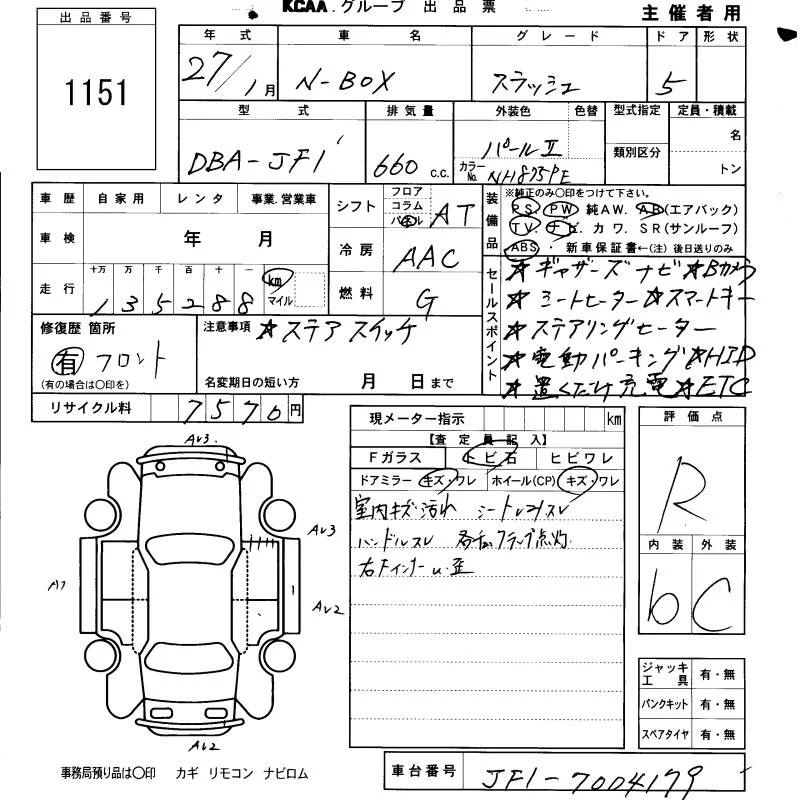 出品番号
1151
KCAA.グループ 出品票
主催者用
年式 車名 グレード ドア 形状
27/1月 N-BOX スラッシュ 5
型式 排気量 外装色 色替 型式指定 定員・積載
DBA-JF1 660 c.c. パールⅡ 名
カラーNo. NH875PE 類別区分 トン
車歴 自家用 レンタ 事業.営業車
車検 年 月
走行 十万 万 千 百 十 一
135288 km マイル
シフト フロア コラム パネル AT
冷房 AAC
燃料 G
装備品
※純正のみ○印をつけて下さい。
PS. PW 純AW. AB(エアバック)
TV. ナビ. カワ. SR(サンルーフ)
ABS. 新車保証書←(注)後日送りのみ
セールスポイント
☆ギャザーズナビ☆Bカメラ
☆シートヒーター☆スマートキー
☆ステアリングヒーター
☆電動パーキング☆HID
☆置くだけ充電☆ETC
修復歴 箇所
有 フロント
(有の場合は○印を)
注意事項 ☆ステアスイッチ
名変期日の短い方 月 日まで
リサイクル料 7570円
現メーター指示 km
【査定員記入】
Fガラス トビ石 ヒビワレ
ドアミラー キズ・ワレ ホイール(CP) キズ・ワレ
室内キズ汚れ シートスレ
ハンドルスレ 各種フラップ点灯
右Fインナー 歪
評価点
R
内装 外装
b C
ジャッキ工具 有・無
パンクキット 有・無
スペアタイヤ 有・無
Av3.
Av3
A1
1
Av2
Av2
事務局預り品は○印 カギ リモコン ナビロム
車台番号 JF1-7004179